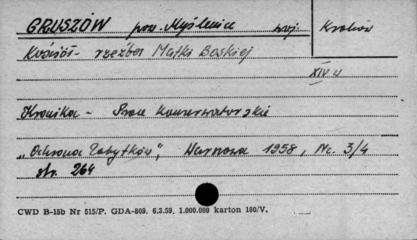 GRUSZÓW pow. Myślenice woj. Kraków
Kościół - rzeźba Matki Boskiej
XIV w
Kronika - Prace konserwatorskie
„Ochrona Zabytków", Warszawa 1958, Nr. 3/4
str. 264
CWD B-15b Nr 515/P. GDA-809. 6.3.59. 1.000.000 karton 180/V.